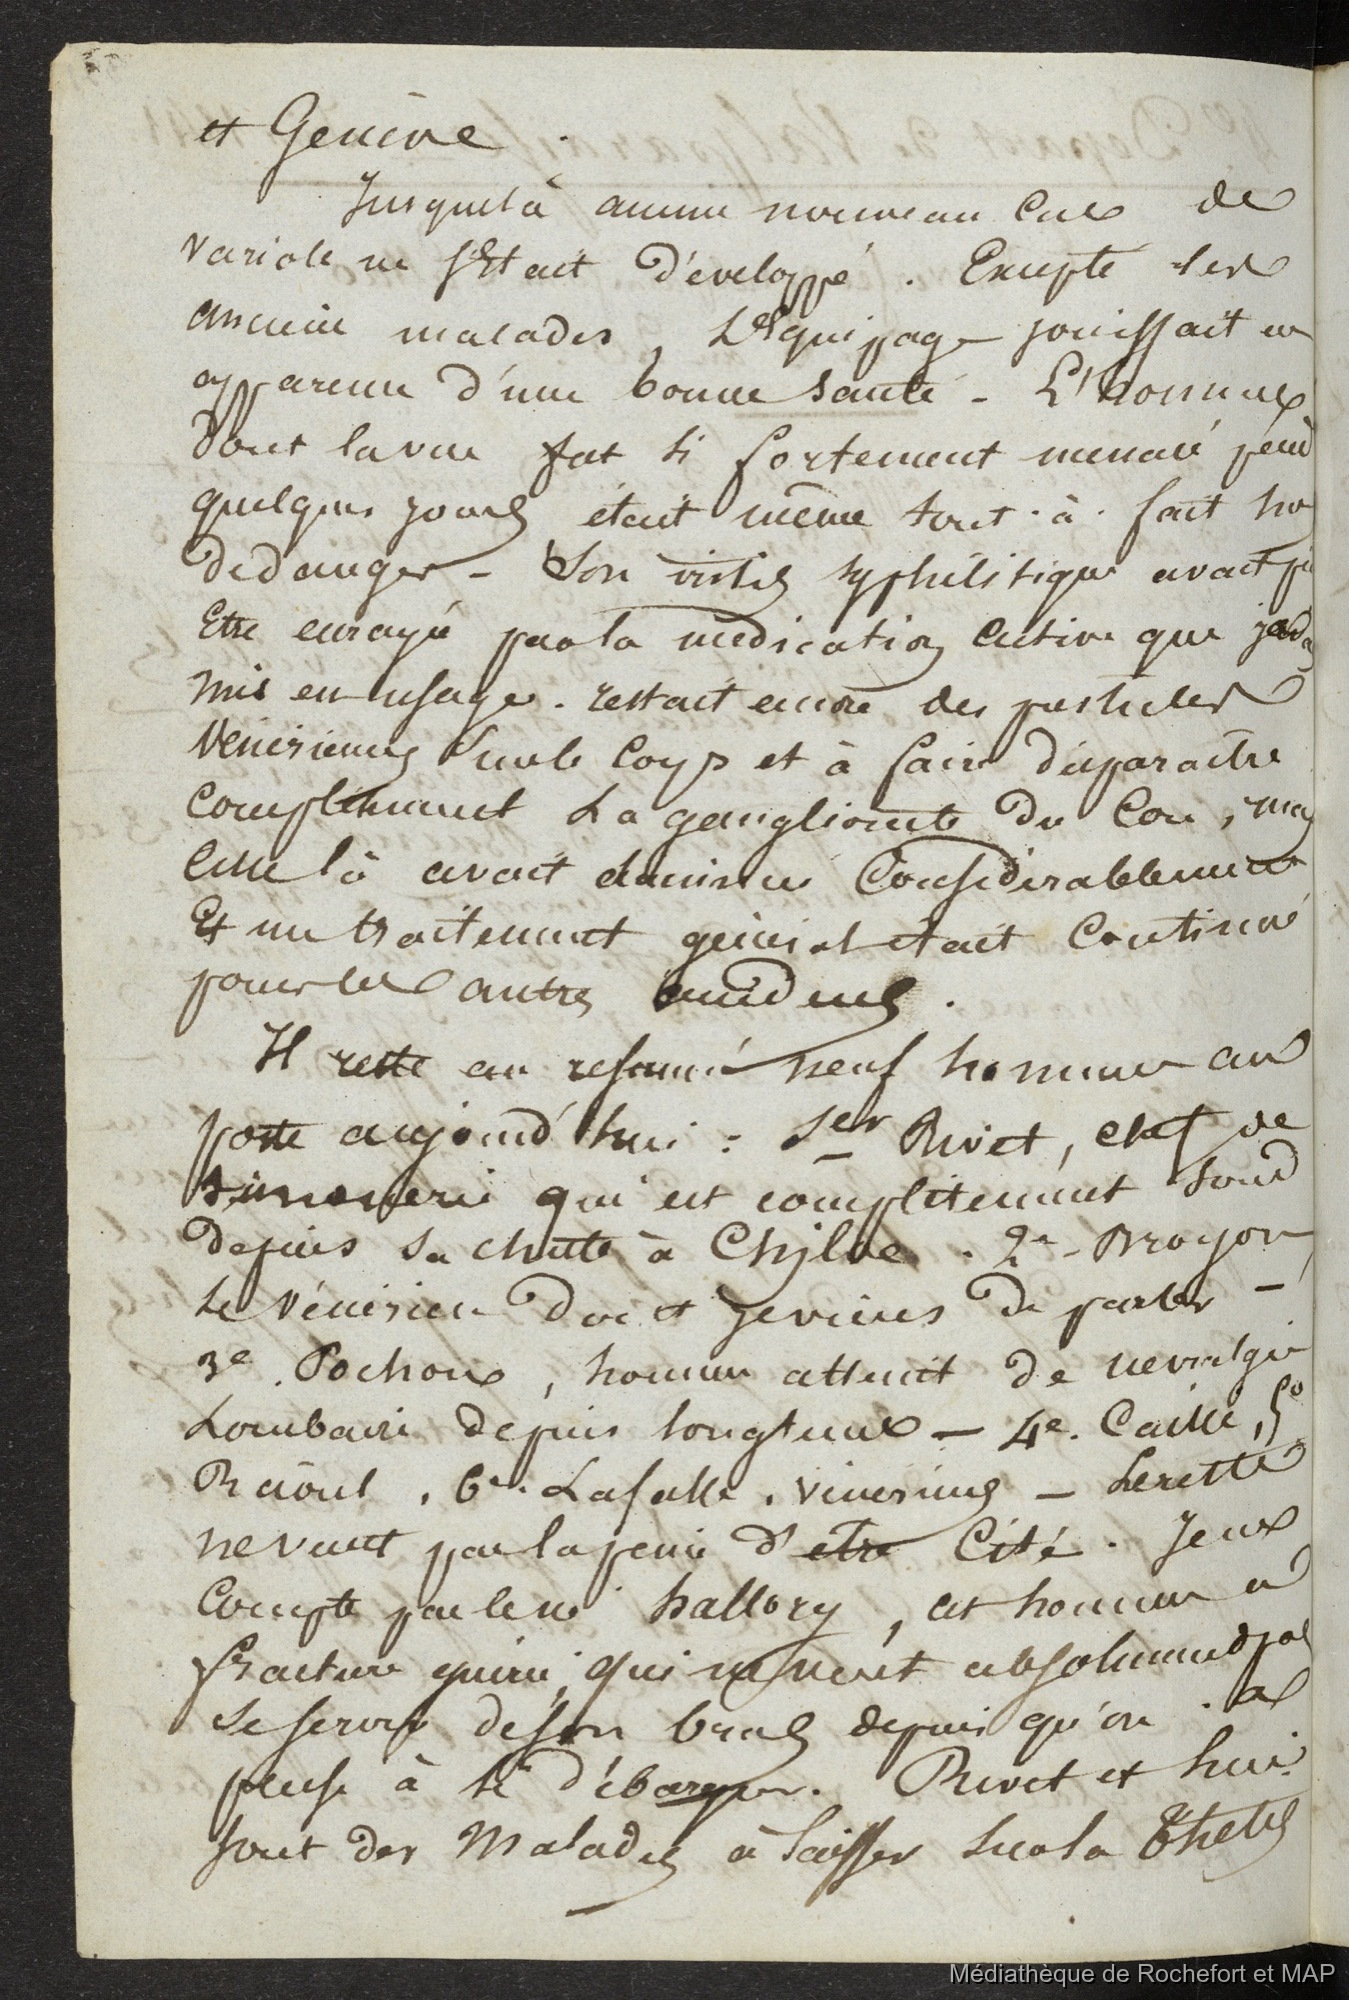 et Genève .
Jusques là aucun nouveau cas de
variole ne s'était développé . Excepté les
anciens malades , L'équipage jouissait en
apparence d'une bonne santé - L'homme
dont la vue fut si fortement menacé pend
quelques jours était même tout-à-fait ho
de danger - Son iritis syphilitique avait pu
Etre enrayée par la médication active que j'ava
mis en usage . restait encore des pustules
Vénériennes sur le corps et à faire disparaitre
complètement La ganglionite du Cou , mais
celle là avait diminué Considérablement
Et un traitement général était Continué
pour les autres accidents .
Il reste en résumé neuf hommes au
poste aujourd'hui : 1er Rivet , chef de
timonerie qui est complètement sourd
depuis sa chute à Chyloe . 2e - Broyon
le Vénérien dont je viens de parler -
3e . Pochoux , homme atteint de névralgie
Lombaire depuis longtemps - 4e . Caille , 5e
Raoul , 6e . Lafalle . vénériens - Le reste
ne vaut pas la peine d'etre Cité . Je ne
Compte pas le né hallory , cet homme à
fracture guérie , qui ne veut absolument pas
se servir de son bras depuis qu'on a
pensé à le débarquer . Rivet et lui
sont des Malades à laisser sur la Thetis
Médiathèque de Rochefort et MAP